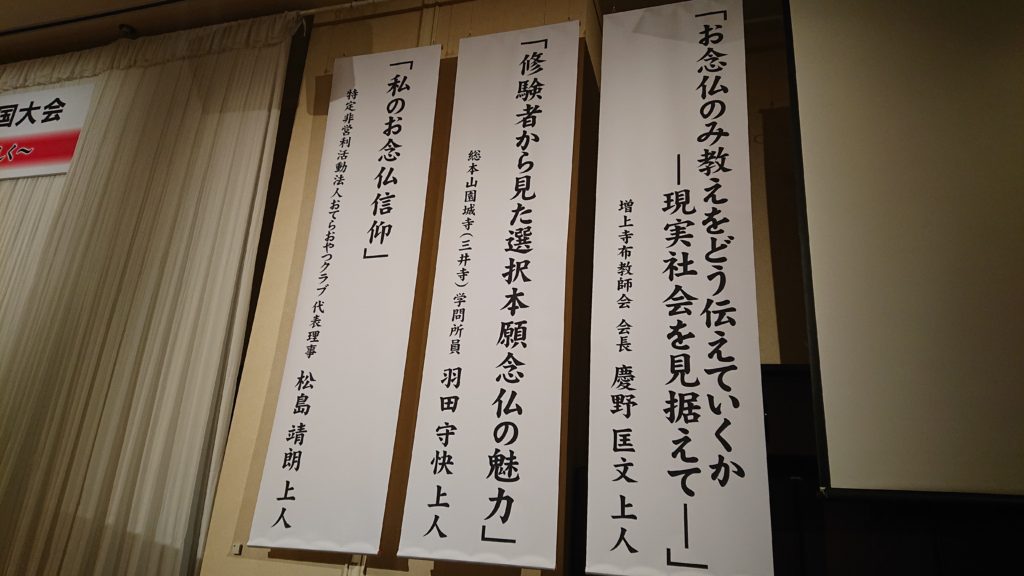 「お念仏のみ教えをどう伝えていくか
―現実社会を見据えて―」
増上寺布教師会 会長 慶野 匡文 上人
「修験者から見た選択本願念仏の魅力」
総本山園城寺(三井寺)学問所員 羽田 守快 上人
「私のお念仏信仰」
特定非営利活動法人おてらおやつクラブ 代表理事 松島 靖朗 上人
国大会
く〜